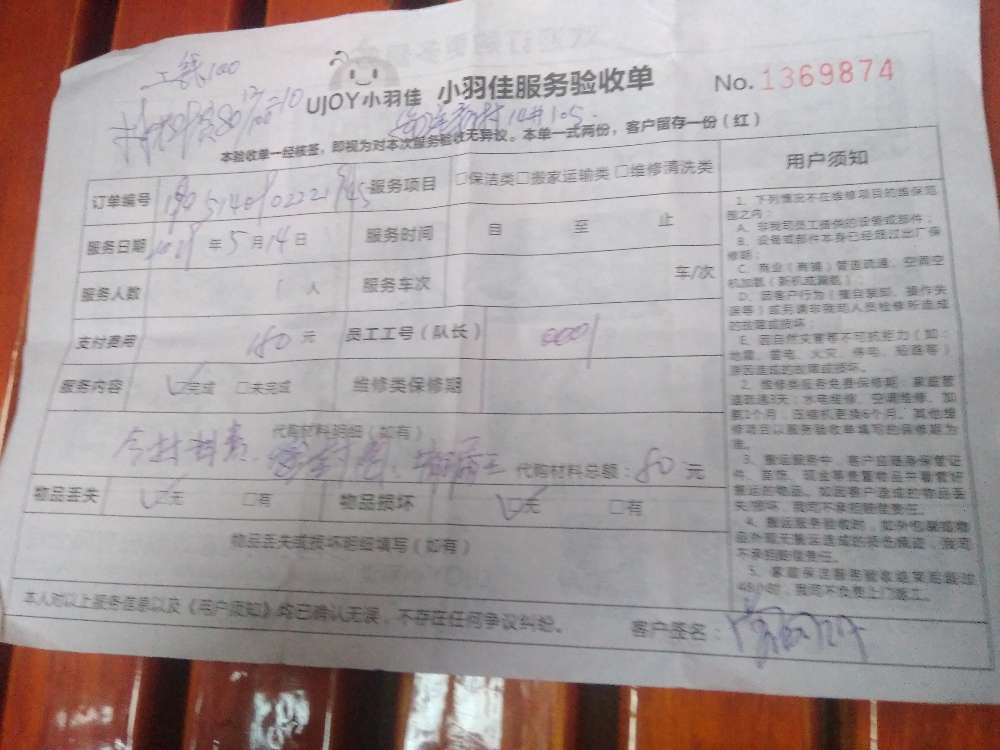 工钱100
UJOY小羽佳 小羽佳服务验收单 No.1369874
本验收单一经核签，即视为对本次服务验收无异议。本单一式两份，客户留存一份（红）
订单编号 服务项目 □保洁类□搬家运输类 □维修清洗类
服务日期 年5月14日 服务时间 自 至 止
服务人数 人 服务车次 车/次
支付费用 180元 员工工号（队长） 0001
服务内容 □完成 □未完成 维修类保修期
代购材料明细（如有）
代购材料总额：80元
物品丢失 □无 □有 物品损坏 □无 □有
物品丢失或损坏明细填写（如有）
本人对以上服务信息以及《用户须知》均已确认无误，不存在任何争议纠纷。
客户签名：
用户须知
1、下列情况不在维修项目的维保范
围之内：
A、非我司员工提供的设备或部件；
B、设备或部件本身已经超过出厂保
修期；
C、商业（商铺）管道疏通、空调空
机加氨（新机或漏氨）；
D、因客户行为（擅自装卸、操作失
误等）或另请非我司人员检修所造成
的故障或损坏；
E、因自然灾害等不可抗拒力（如：
地震、雷电、火灾、停电、短路等）
原因造成的故障或损坏。
2、维修类服务免费保修期：家庭管
道疏通3天；水电维修、空调维修、加
氨1个月，压缩机更换6个月。其他维
修项目以服务验收单填写的保修期为
准。
3、搬运服务中，客户应随身保管证
件、首饰、现金等贵重物品并看管好
搬运的物品。如因客户造成的物品丢
失/损坏，我司不承担赔偿责任。
4、搬运服务验收时，如外包装或物
品外观无搬运造成的损伤痕迹，我司
不承担赔偿责任。
5、家庭保洁服务验收结束后超过
48小时，我司不负责上门返工。